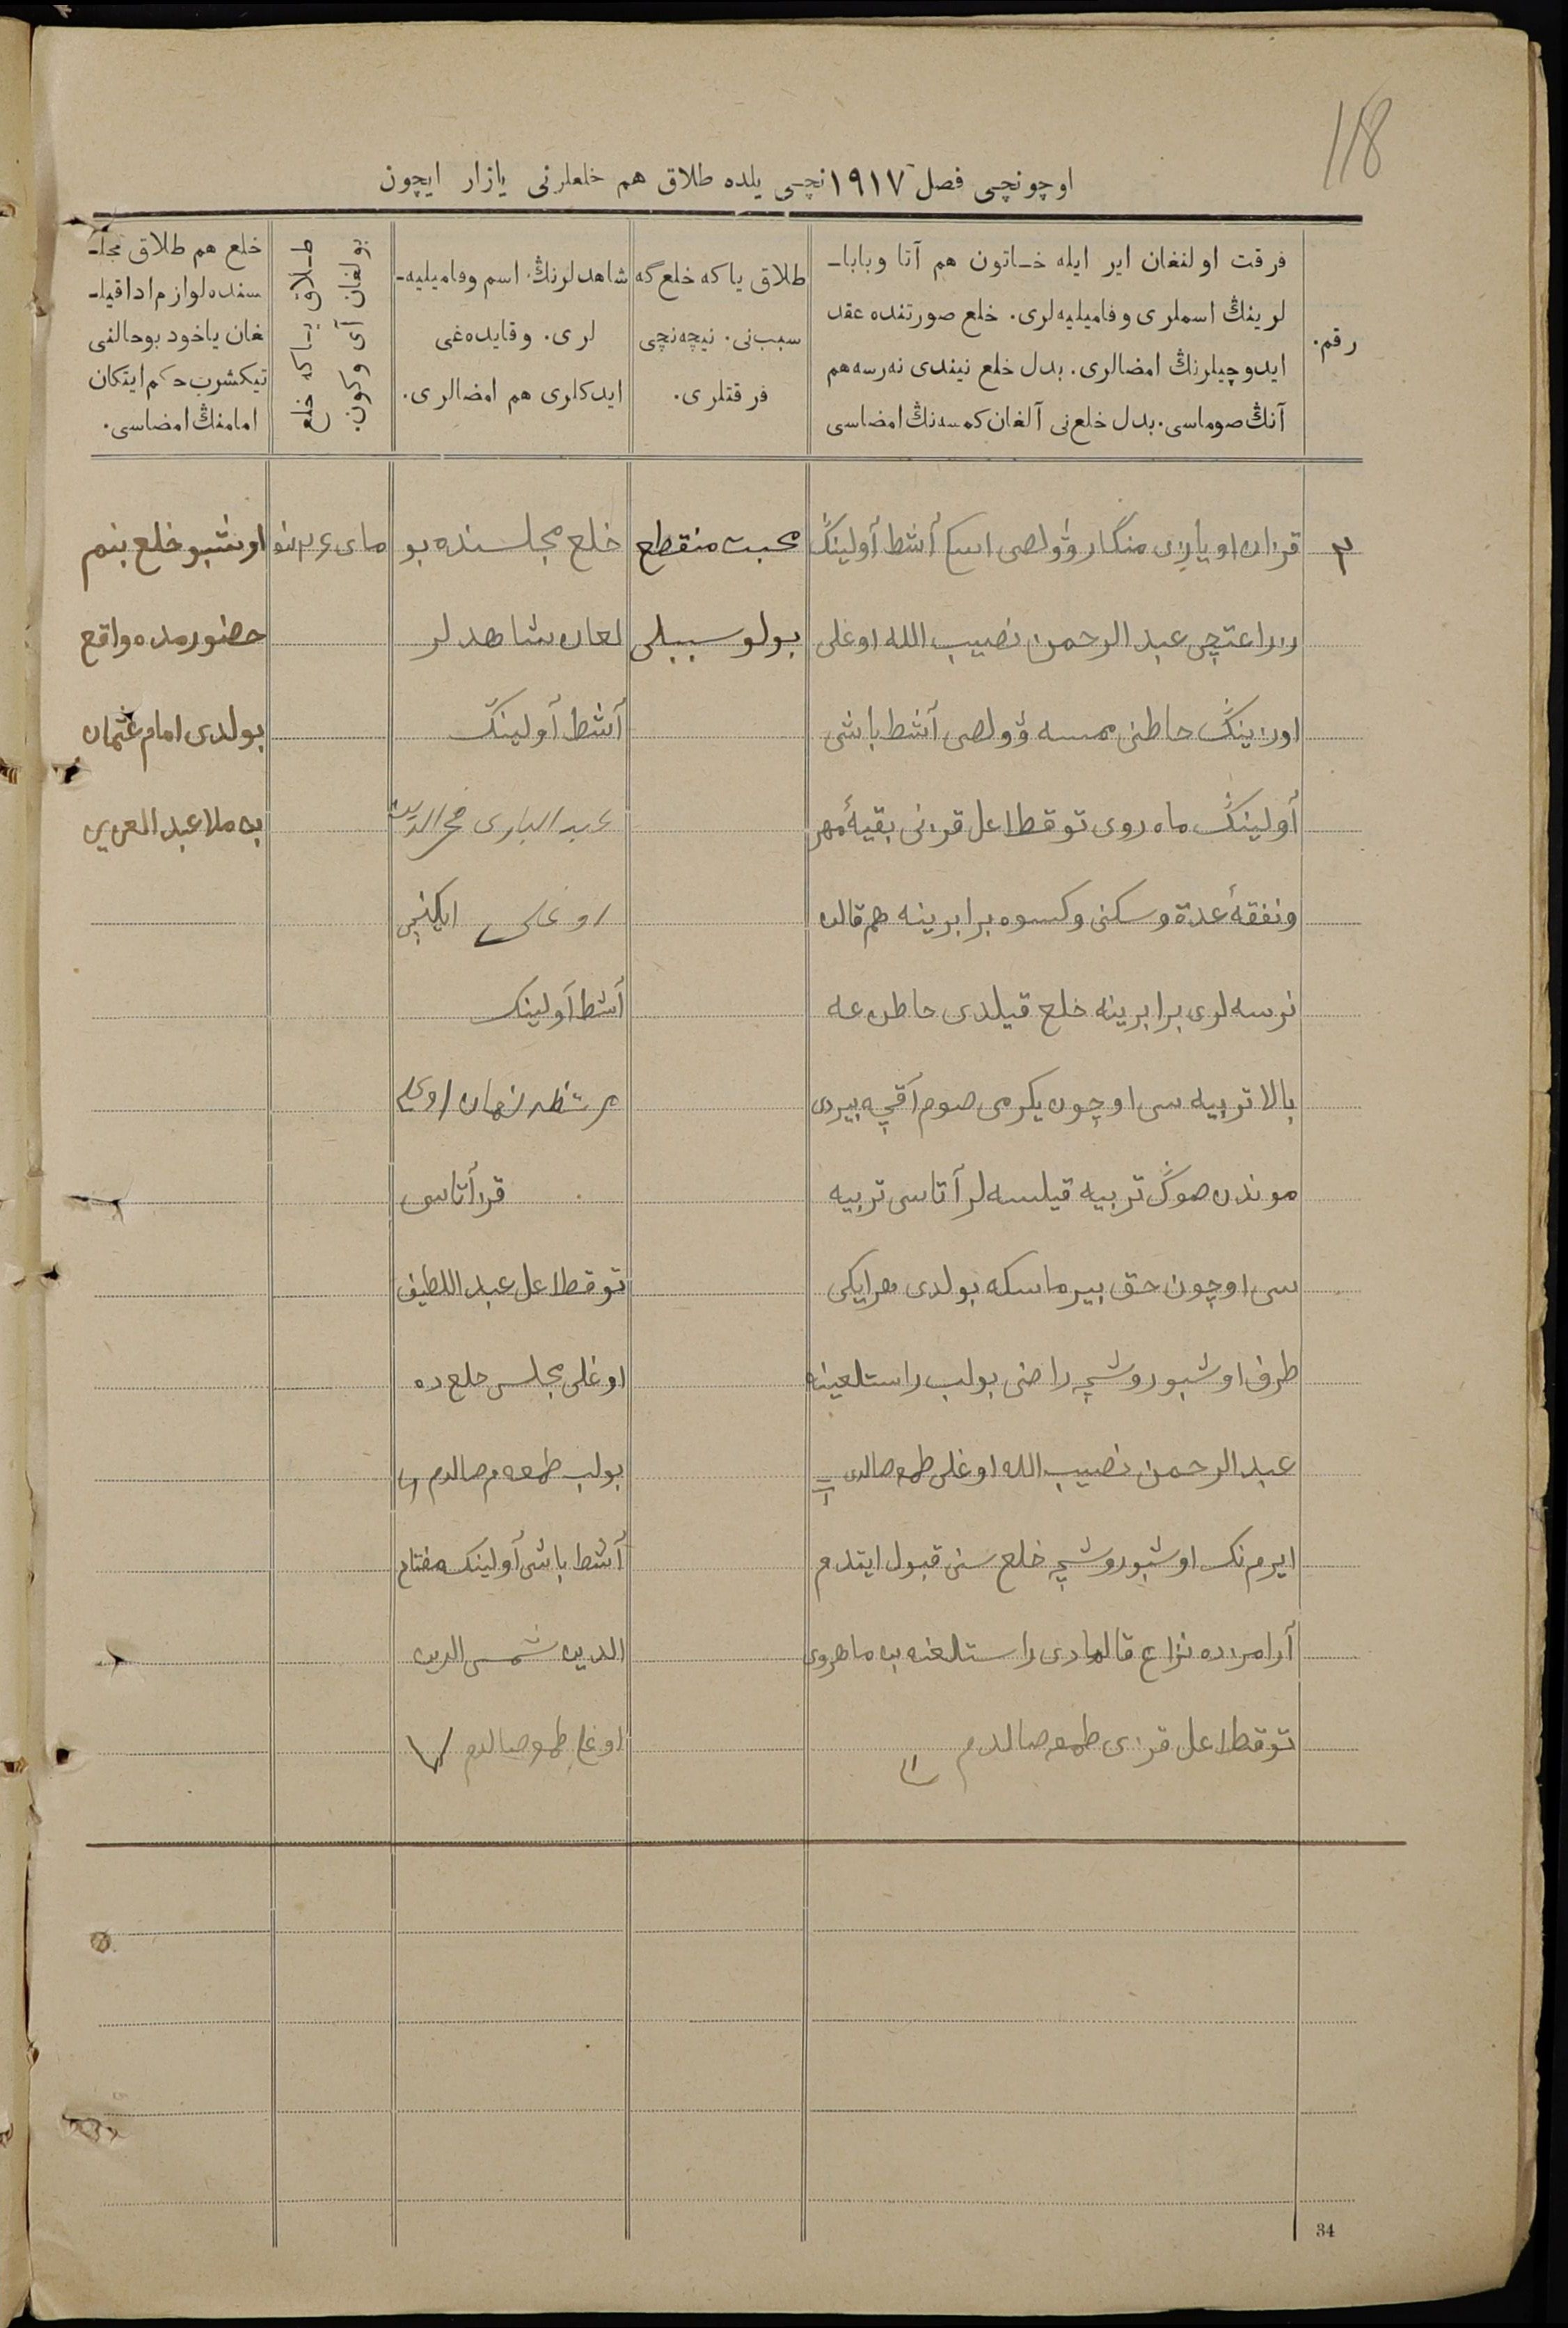 118
اوچونچی فصل ١٩١٧نچی یلده طلاق هم خلعلرنی یازار ایچون
رقم.
فرقت اولنغان ایر ایله خاتون هم آتا وبابا-
لرینڭ اسملری وفامیلیه‌لری. خلع صورتنده عقد
ایدوچیلرنڭ امضالری. بدل خلع نیندی نه‌رسه هم
آنڭ صوماسی. بدل خلع‌نی آلغان کمسه‌نڭ امضاسی
طلاق یا که خلع گه
سبب‌نی. نیچه‌نچی
فرقتلری.
شاهدلرنڭ اسم وفامیلیه-
لری. وقایده‌غی
ایدکلری هم امضالری.
طلاق یا که خلع
بولغان آی وکون.
خلع هم طلاق مجل-
سنده لوازم ادا قیل-
غان یاخود بوحالنی
تیکشرب حکم ایتکان
امامنڭ امضاسی.
٣
قزان اویازی منگار وولصی آشط أولینڭ
عبد الرحمن نصیب الله اوغلی
اوزینڭ وولصی آشط باشی
أولینڭ ماه روی توقطاعل قزنی بقیۀ مهر
ونفقۀ عدة وسکنی وکسوه برابرینه هم قالان
نرسه لری برابرینه خلع قیلدی
بالا تربیه سی اوچون یکرمی صوم آقچه بیردی
موندن صوڭ تربیه قیلسه لر آتاسی تربیه
سی اوچون حق بیرماسکه بولدی هر ایکی
طرف اوشبو روشچه راضی بولب راستلغینه
عبد الرحمن نصیب الله اوغلی طمعه صالدی
ایرم نک اوشبو روشچه خلع سنی قبول ایتدم
آرامزده نزاع قالمادی راستلغنه بن ماهروی
توقطاعل قزی طمعه صالدم
محبت منقطع
بولو سببلی
خلع مجلسنده بو
لغان شاهدلر
آشط أولینڭ
عبد الباری فخر الدین
اوغلی ایکنچی
آشط أولینک
قز آتاسی
توقطاعل عبد اللطیف
اوغلی مجلس خلع ده
بولب طمعه م صالدم
آشط باشی أولینک مفتاح
الدین شمس الدین
اوغلی طمعه صالدم
مای
اوشبو خلع بنم
حضورمده واقع
بولدی امام عثمان
بن ملا عبد العزیز
34